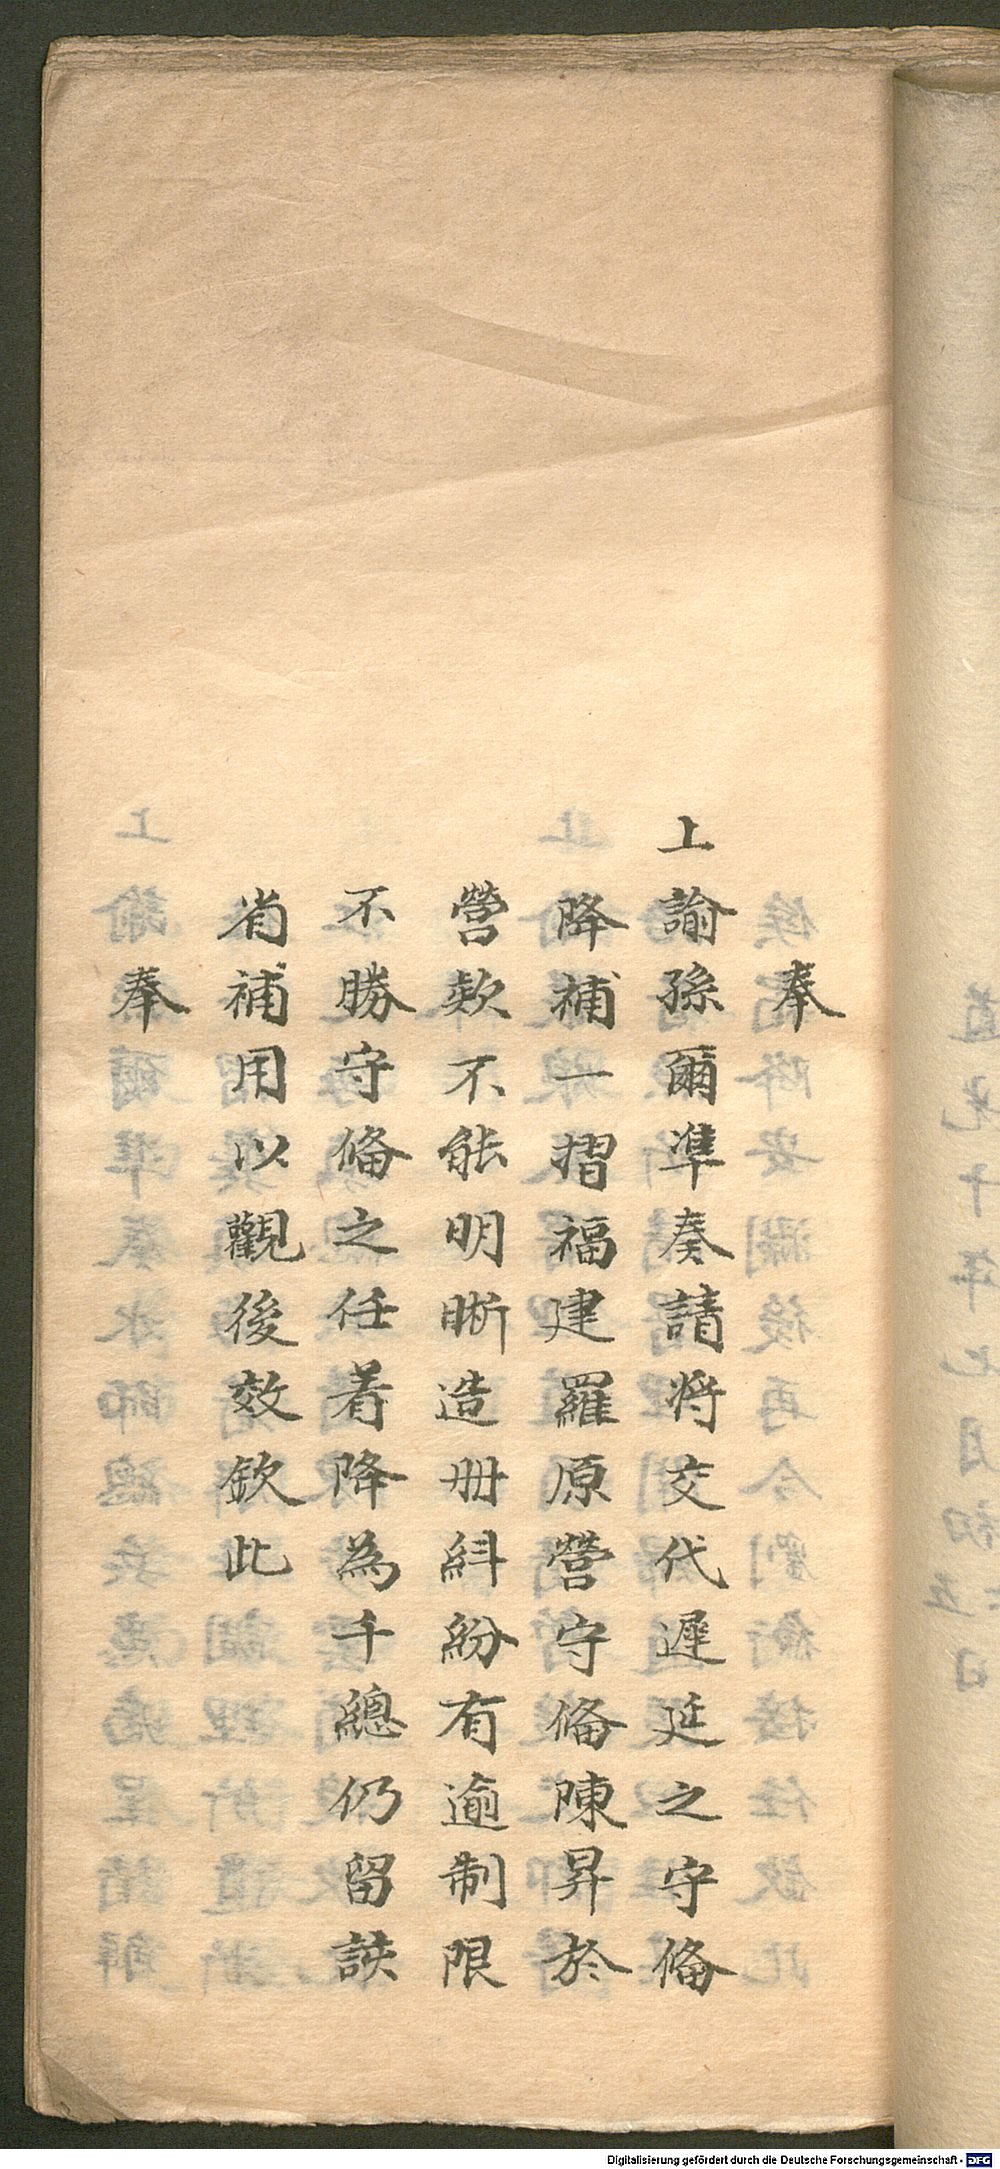 奉
上諭孫爾準奏請將交代遲延之守備
降補一摺福建羅原營守備陳昇於
營欵不能明晰造册糾紛有逾制限
不勝守備之任着降為千總仍留該
省補用以觀後效欽此
奉
Digitalisierung gefördert durch die Deutsche Forschungsgemeinschaft - DFG